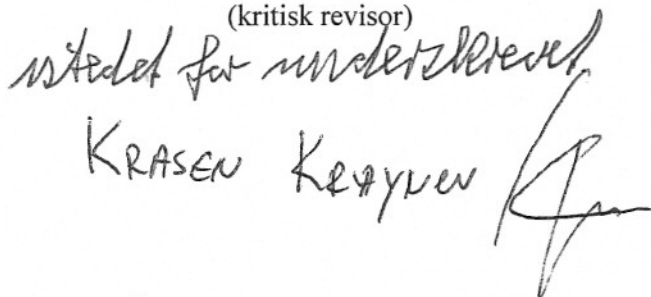 (kritisk revisor)
istedet for underskrevet
KRASEN KRAYNEV